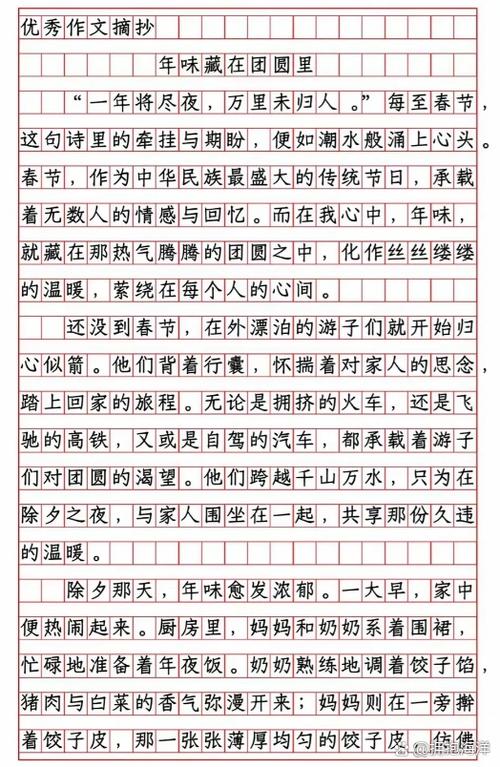 优秀作文摘抄
年味藏在团圆里
“一年将尽夜，万里未归人。”每至春节，
这句诗里的牵挂与期盼，便如潮水般涌上心头。
春节，作为中华民族最盛大的传统节日，承载
着无数人的情感与回忆。而在我心中，年味，
就藏在那热气腾腾的团圆之中，化作丝丝缕缕
的温暖，萦绕在每个人的心间。
还没到春节，在外漂泊的游子们就开始归
心似箭。他们背着行囊，怀揣着对家人的思念，
踏上回家的旅程。无论是拥挤的火车，还是飞
驰的高铁，又或是自驾的汽车，都承载着游子
们对团圆的渴望。他们跨越千山万水，只为在
除夕之夜，与家人围坐在一起，共享那份久违
的温暖。
除夕那天，年味愈发浓郁。一大早，家中
便热闹起来。厨房里，妈妈和奶奶系着围裙，
忙碌地准备着年夜饭。奶奶熟练地调着饺子馅，
猪肉与白菜的香气弥漫开来；妈妈则在一旁擀
着饺子皮，那一张张薄厚均匀的饺子皮，仿佛
@拥抱海洋